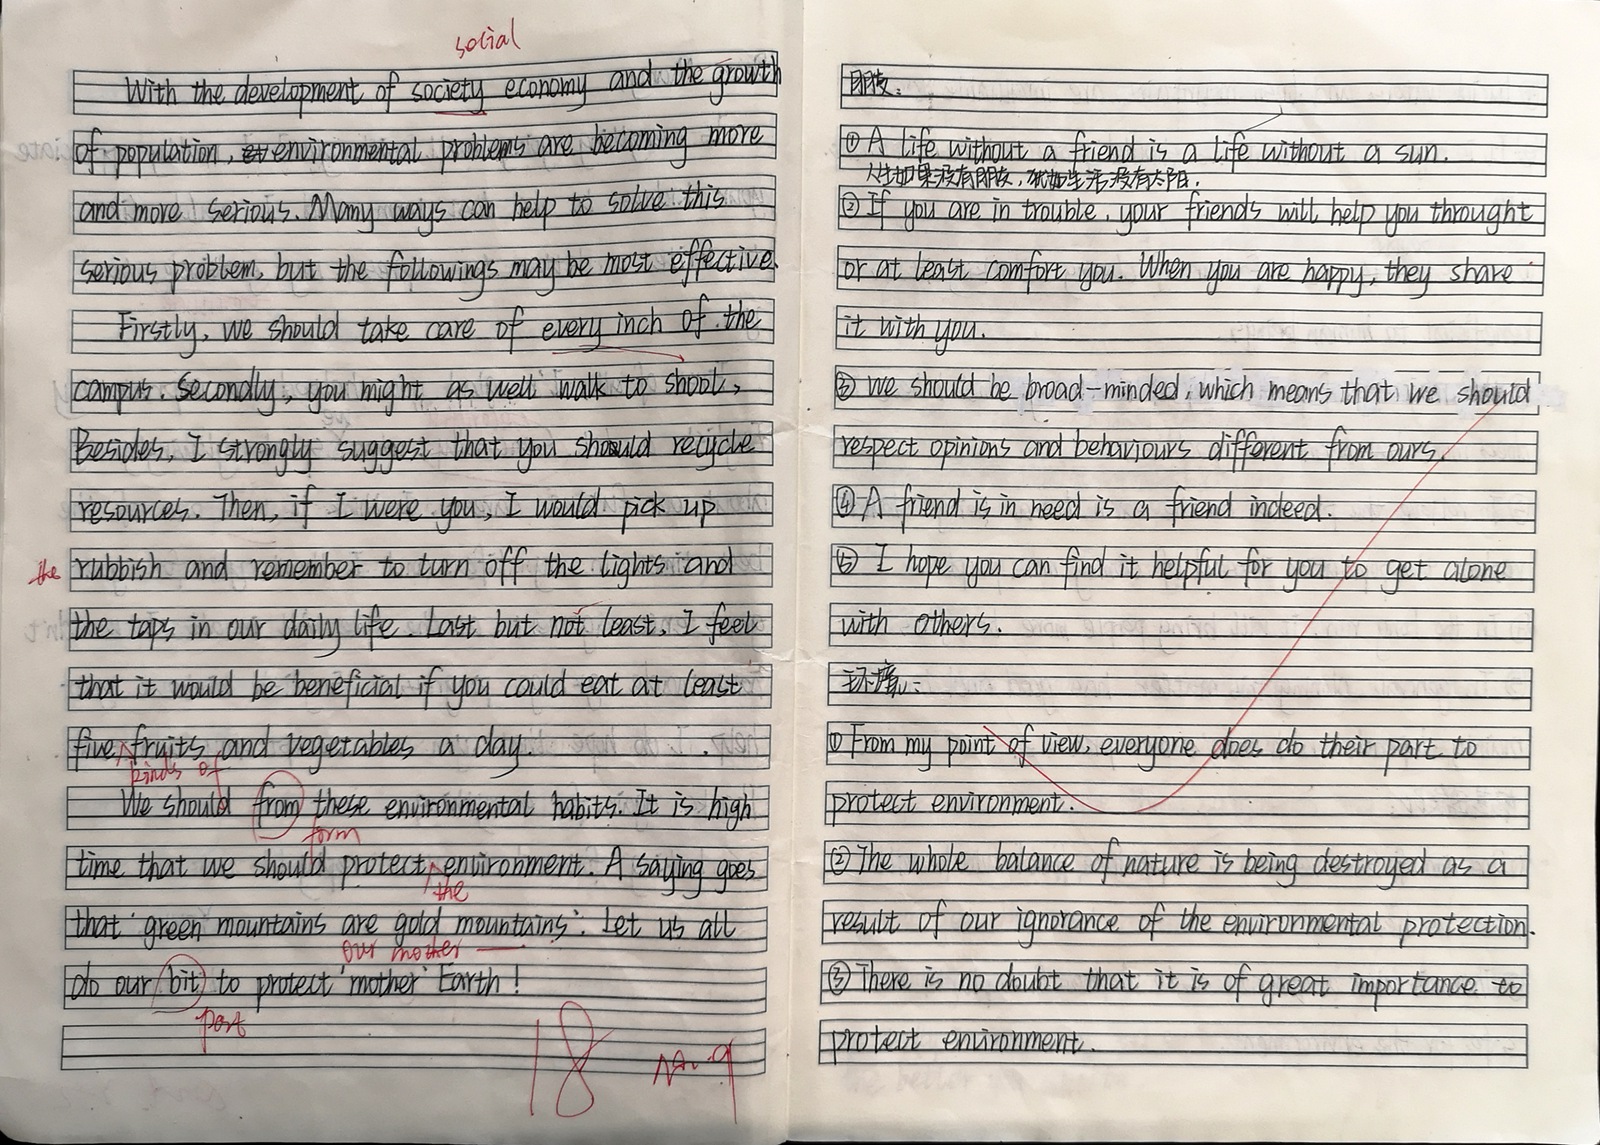 social
With the development of society economy and the growth
of population, environmental problems are becoming more
and more serious. Many ways can help to solve this
serious problem, but the followings may be most effective.
Firstly, we should take care of every inch of the
campus. Secondly, you might as well walk to shool,
Besides, I strongly suggest that you should recycle
resources. Then, if I were you, I would pick up
the rubbish and remember to turn off the lights and
the taps in our daily life. Last but not least, I feel
that it would be beneficial if you could eat at least
five fruits and vegetables a day.
kinds of
We should from these environmental habits. It is high
form
time that we should protect environment. A saying goes
the
that 'green mountains are gold mountains'. Let us all
our mother
do our bit to protect 'mother' Earth!
part
18
朋友:
① A life without a friend is a life without a sun.
人生如果没有朋友,犹如生活没有太阳.
② If you are in trouble, your friends will help you throught
or at least comfort you. When you are happy, they share
it with you.
③ We should be broad-minded, which means that we should
respect opinions and behaviours different from ours.
④ A friend is in need is a friend indeed.
⑤ I hope you can find it helpful for you to get alone
with others.
① From my point of view, everyone does do their part to
protect environment.
② The whole balance of nature is being destroyed as a
result of our ignorance of the environmental protection.
③ There is no doubt that it is of great importance to
protect environment.